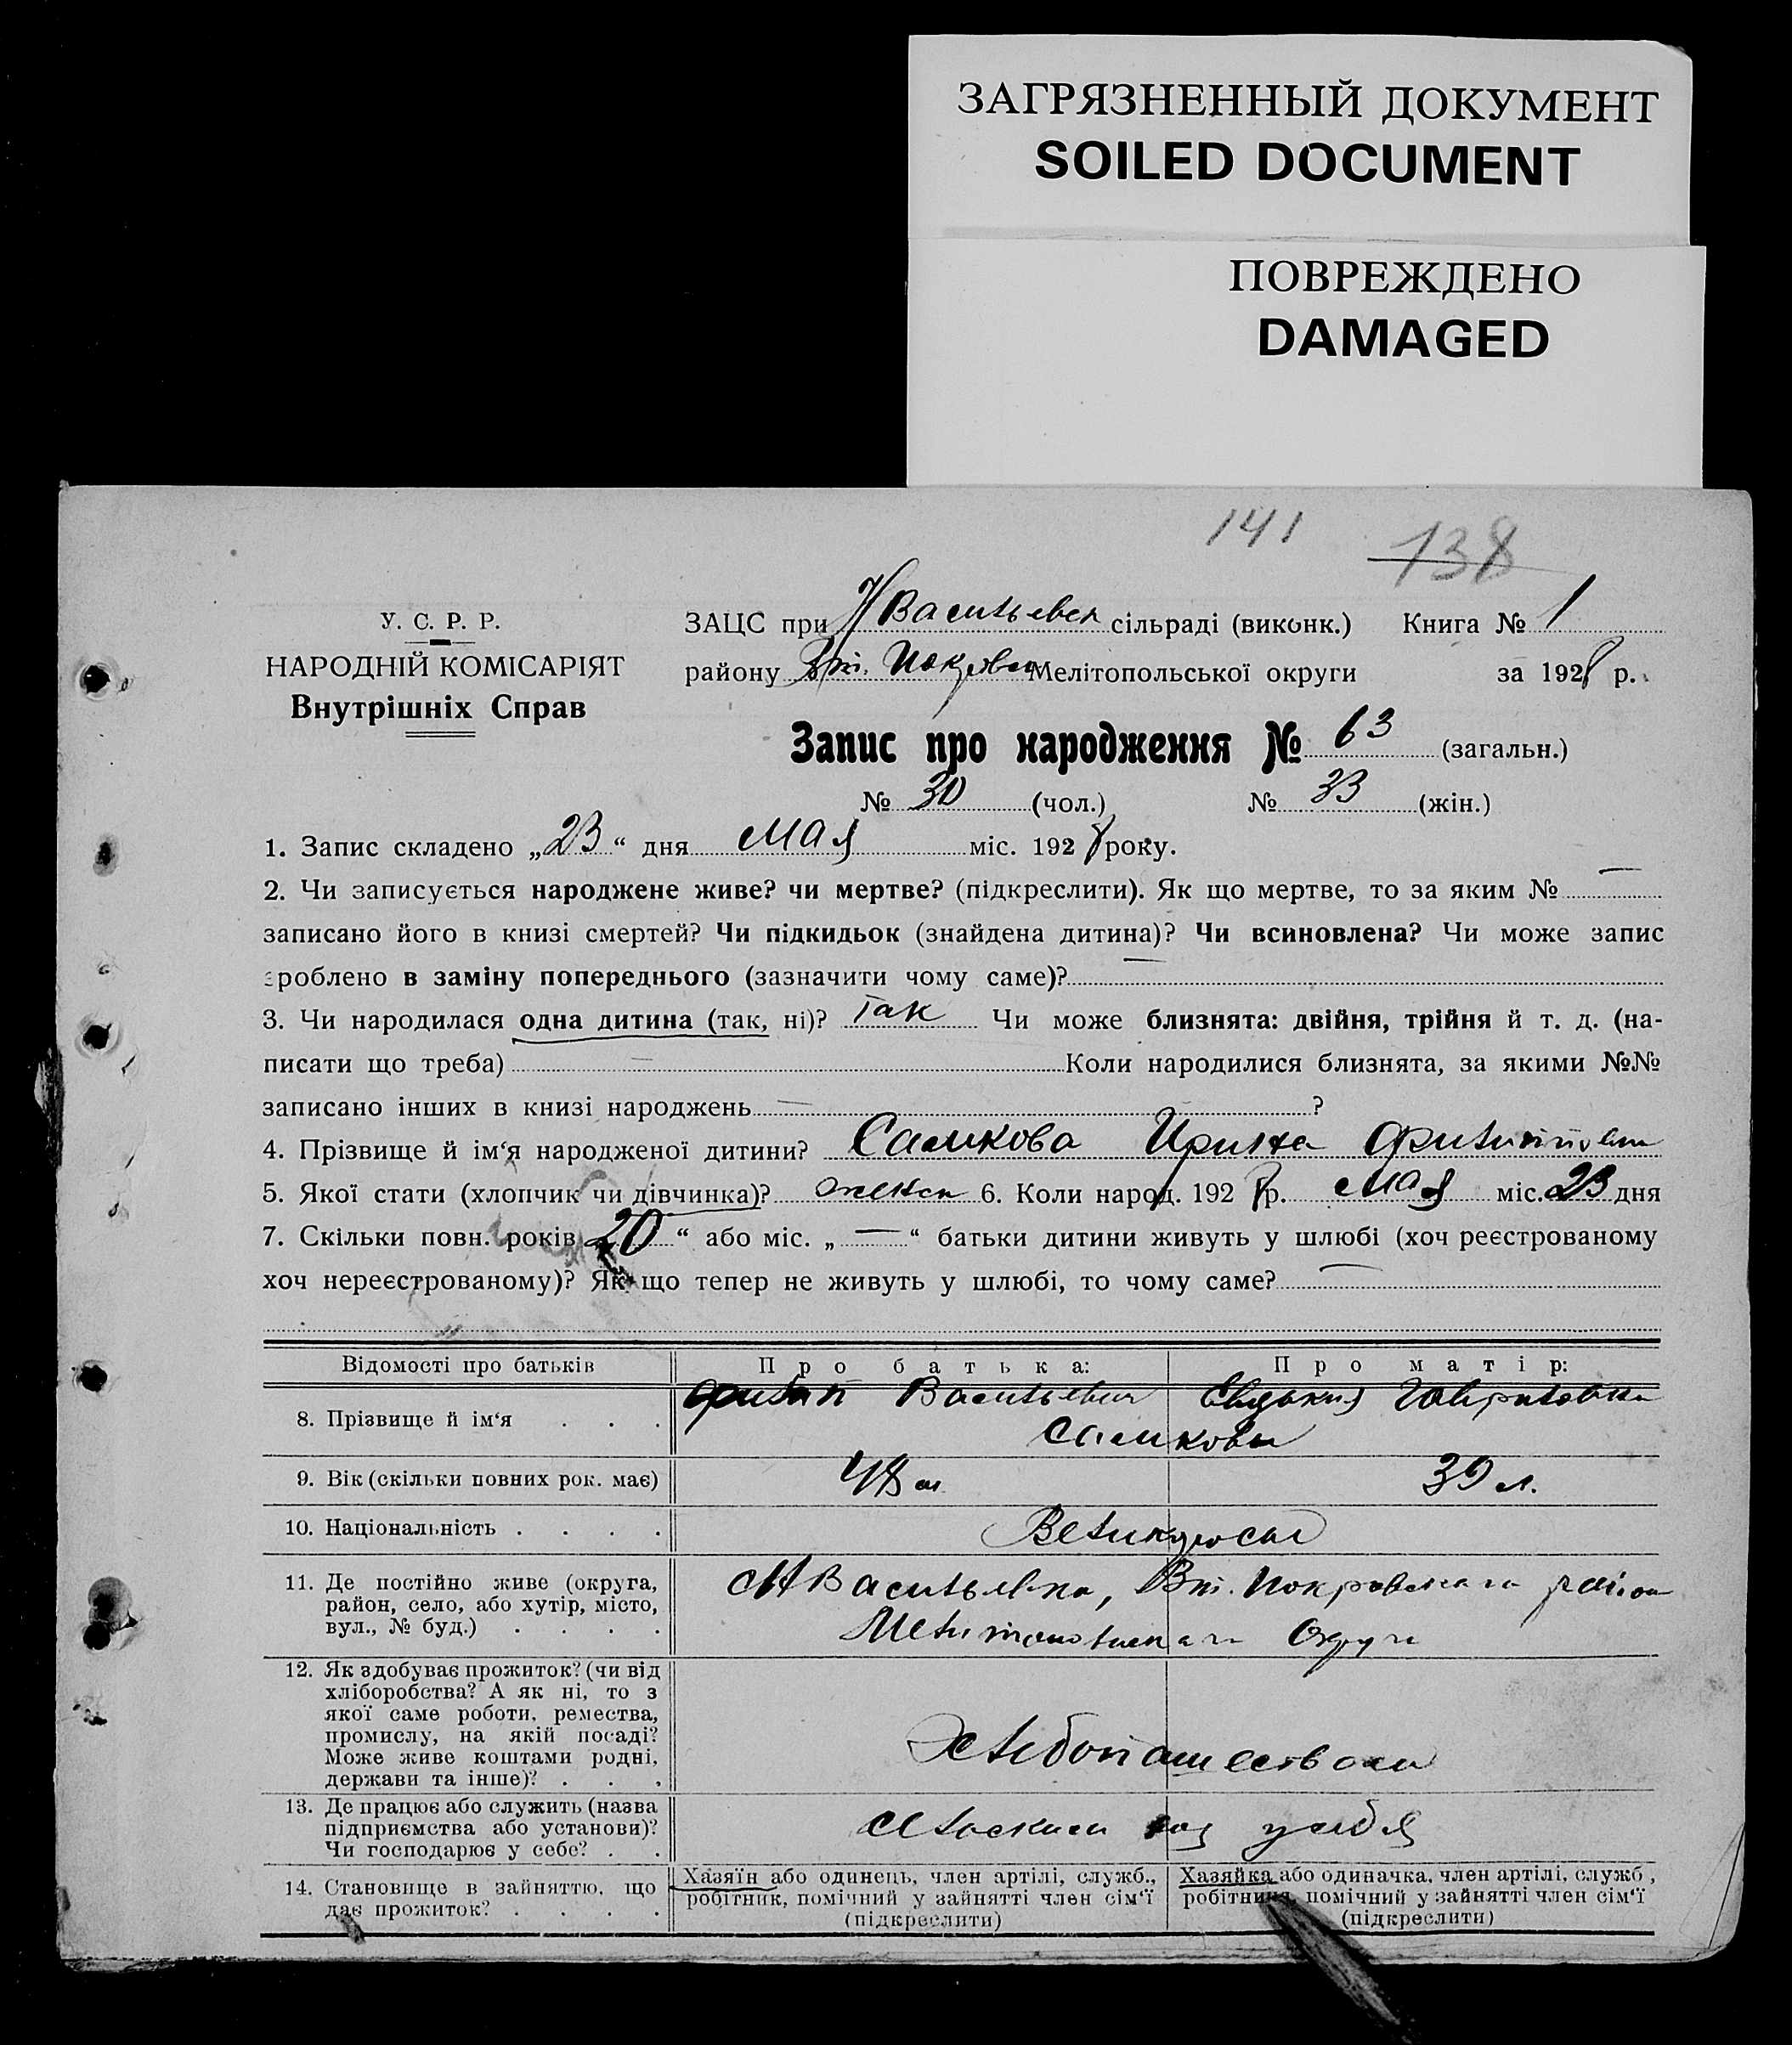 ЗАГРЯЗНЕННЫЙ ДОКУМЕНТ
SOILED DOCUMENT
ПОВРЕЖДЕНО
DAMAGED
141 138
У. С. Р. Р.
НАРОДНІЙ КОМІСАРІЯТ
Внутрішніх Справ
ЗАЦС при Н Васильевск сільраді (виконк.) Книга № 1
району Вт. Покровск Мелітопольської округи за 1928 р.
Запис про народження № 63 (загальн.)
№ 30 (чол.) № 33 (жін.)
1. Запис складено „23“ дня мая міс. 1928 року.
2. Чи записується народжене живе? чи мертве? (підкреслити). Як що мертве, то за яким № —
записано його в книзі смертей? Чи підкидьок (знайдена дитина)? Чи всиновлена? Чи може запис
зроблено в заміну попереднього (зазначити чому саме)? —
3. Чи народилася одна дитина (так, ні)? Так Чи може близнята: двійня, трійня й т. д. (на-
писати що треба) — Коли народилися близнята, за якими №№
записано інших в книзі народжень — ?
4. Прізвище й ім‘я народженої дитини? Самкова Ирина
5. Якої стати (хлопчик чи дівчинка)? женск 6. Коли народ. 1928 р. мая міс. 23 дня
7. Скільки повн. років 20 “ або міс. „ — “ батьки дитини живуть у шлюбі (хоч реєстрованому
хоч нереєстрованому)? Як що тепер не живуть у шлюбі, то чому саме? —
Відомості про батьків Про батька: Про матір:
8. Прізвище й ім‘я . . . Филип Васильевич Евдокия Гавриловна
Самковы
9. Вік (скільки повних рок. має) 48 л 39 л.
10. Національність . . . . Великоросы
11. Де постійно живе (округа, район, село, або хутір, місто, вул., № буд.) . . . . Н Васильевка, Вт. Покровского района
Мелитопольского Округа
12. Як здобуває прожиток? (чи від хліборобства? А як ні, то з якої саме роботи, ремества, промислу, на якій посаді? Може живе коштами родні, держави та інше)? . . . Хлебопашеством
13. Де працює або служить (назва підприємства або установи)? Чи господарює у себе? . .
14. Становище в зайняттю, що дає прожиток? . . . .
Хазяїн або одинець, член артілі, служб., робітник, помічний у зайнятті член сім‘ї (підкреслити)
Хазяйка або одиначка, член артілі, служб, робітниця, помічний у зайнятті член сім‘ї (підкреслити)